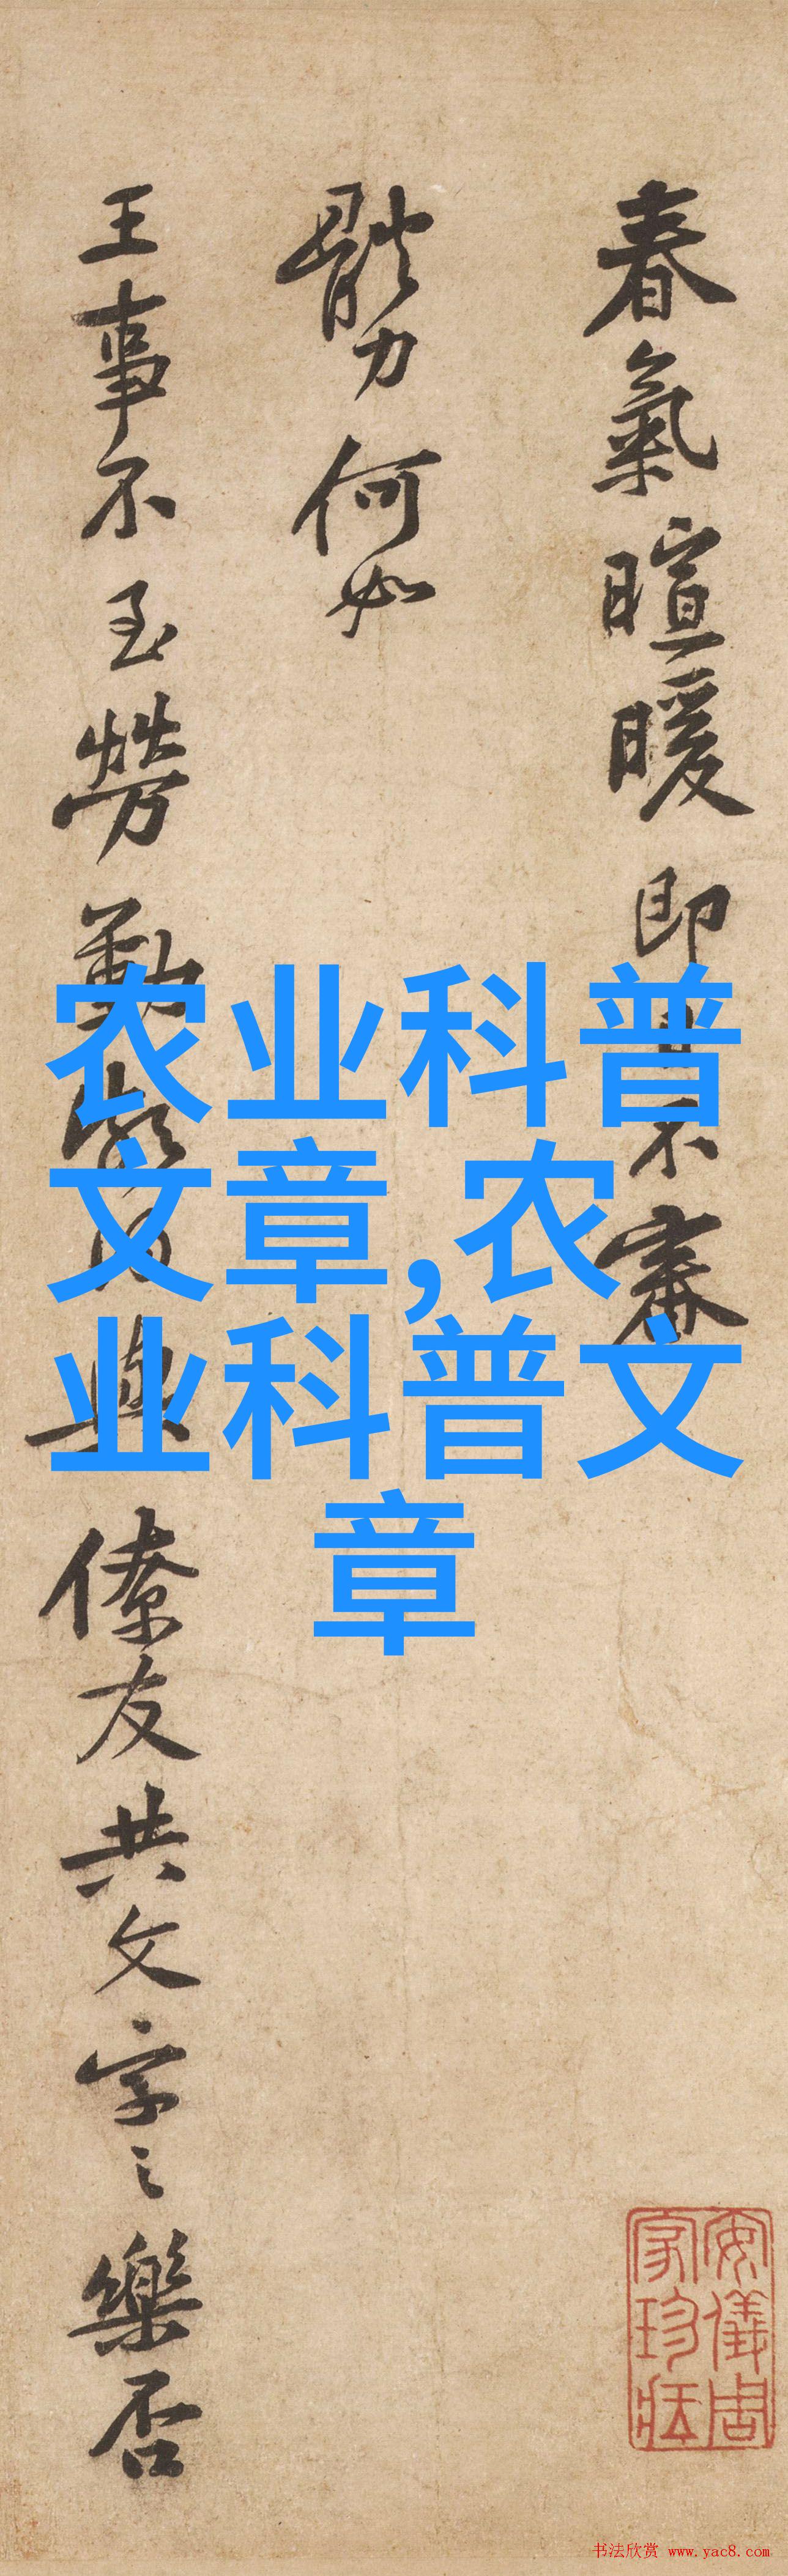 春氣暄暖即日不審
體力何如
王事不至勞勤
與
僚友共文字之樂否
农业科普
文章,农
业科普文
章
安儀周
家珍藏
书法欣赏 www.yac8.com